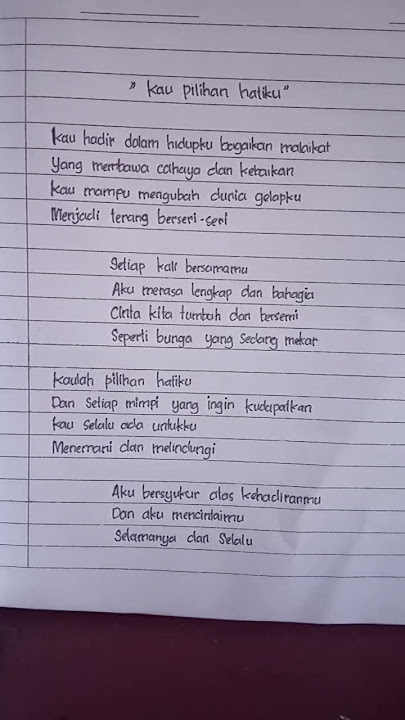 "Kau pilihan hatiku"
Kau hadir dalam hidupku bagaikan malaikat
Yang membawa cahaya dan kebaikan
Kau mampu mengubah dunia gelapku
Menjadi terang berseri-seri
Setiap kali bersamamu
Aku merasa lengkap dan bahagia
Cinta kita tumbuh dan bersemi
Seperti bunga yang sedang mekar
Kaulah pilihan hatiku
Dan setiap mimpi yang ingin kudapatkan
Kau selalu ada untukku
Menemani dan melindungi
Aku bersyukur atas kehadiranmu
Dan aku mencintaimu
Selamanya dan Selalu